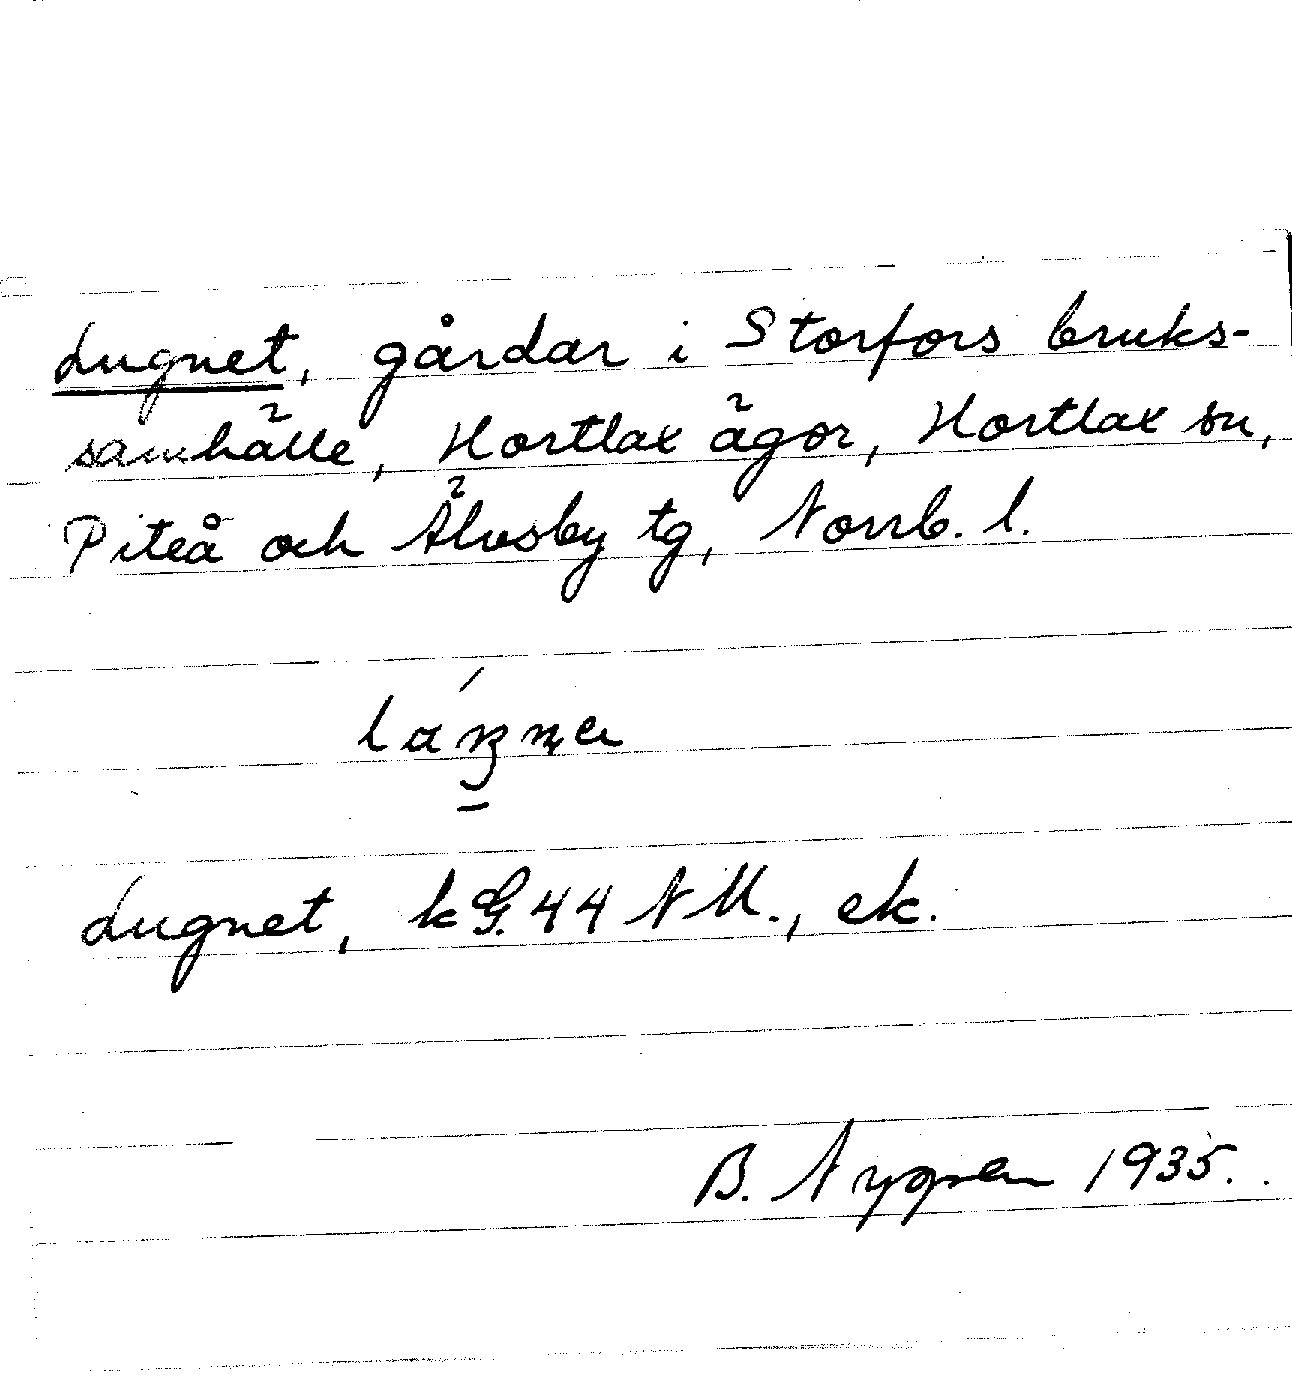 Lugnet, gårdar i Storfors bruks-
samhälle, Hortlax ägor, Hortlax sn,
Piteå och Älvsby tg, Norrb. l.
Lugnet, k G. 44 NM., ek.
B. Nygren 1935.